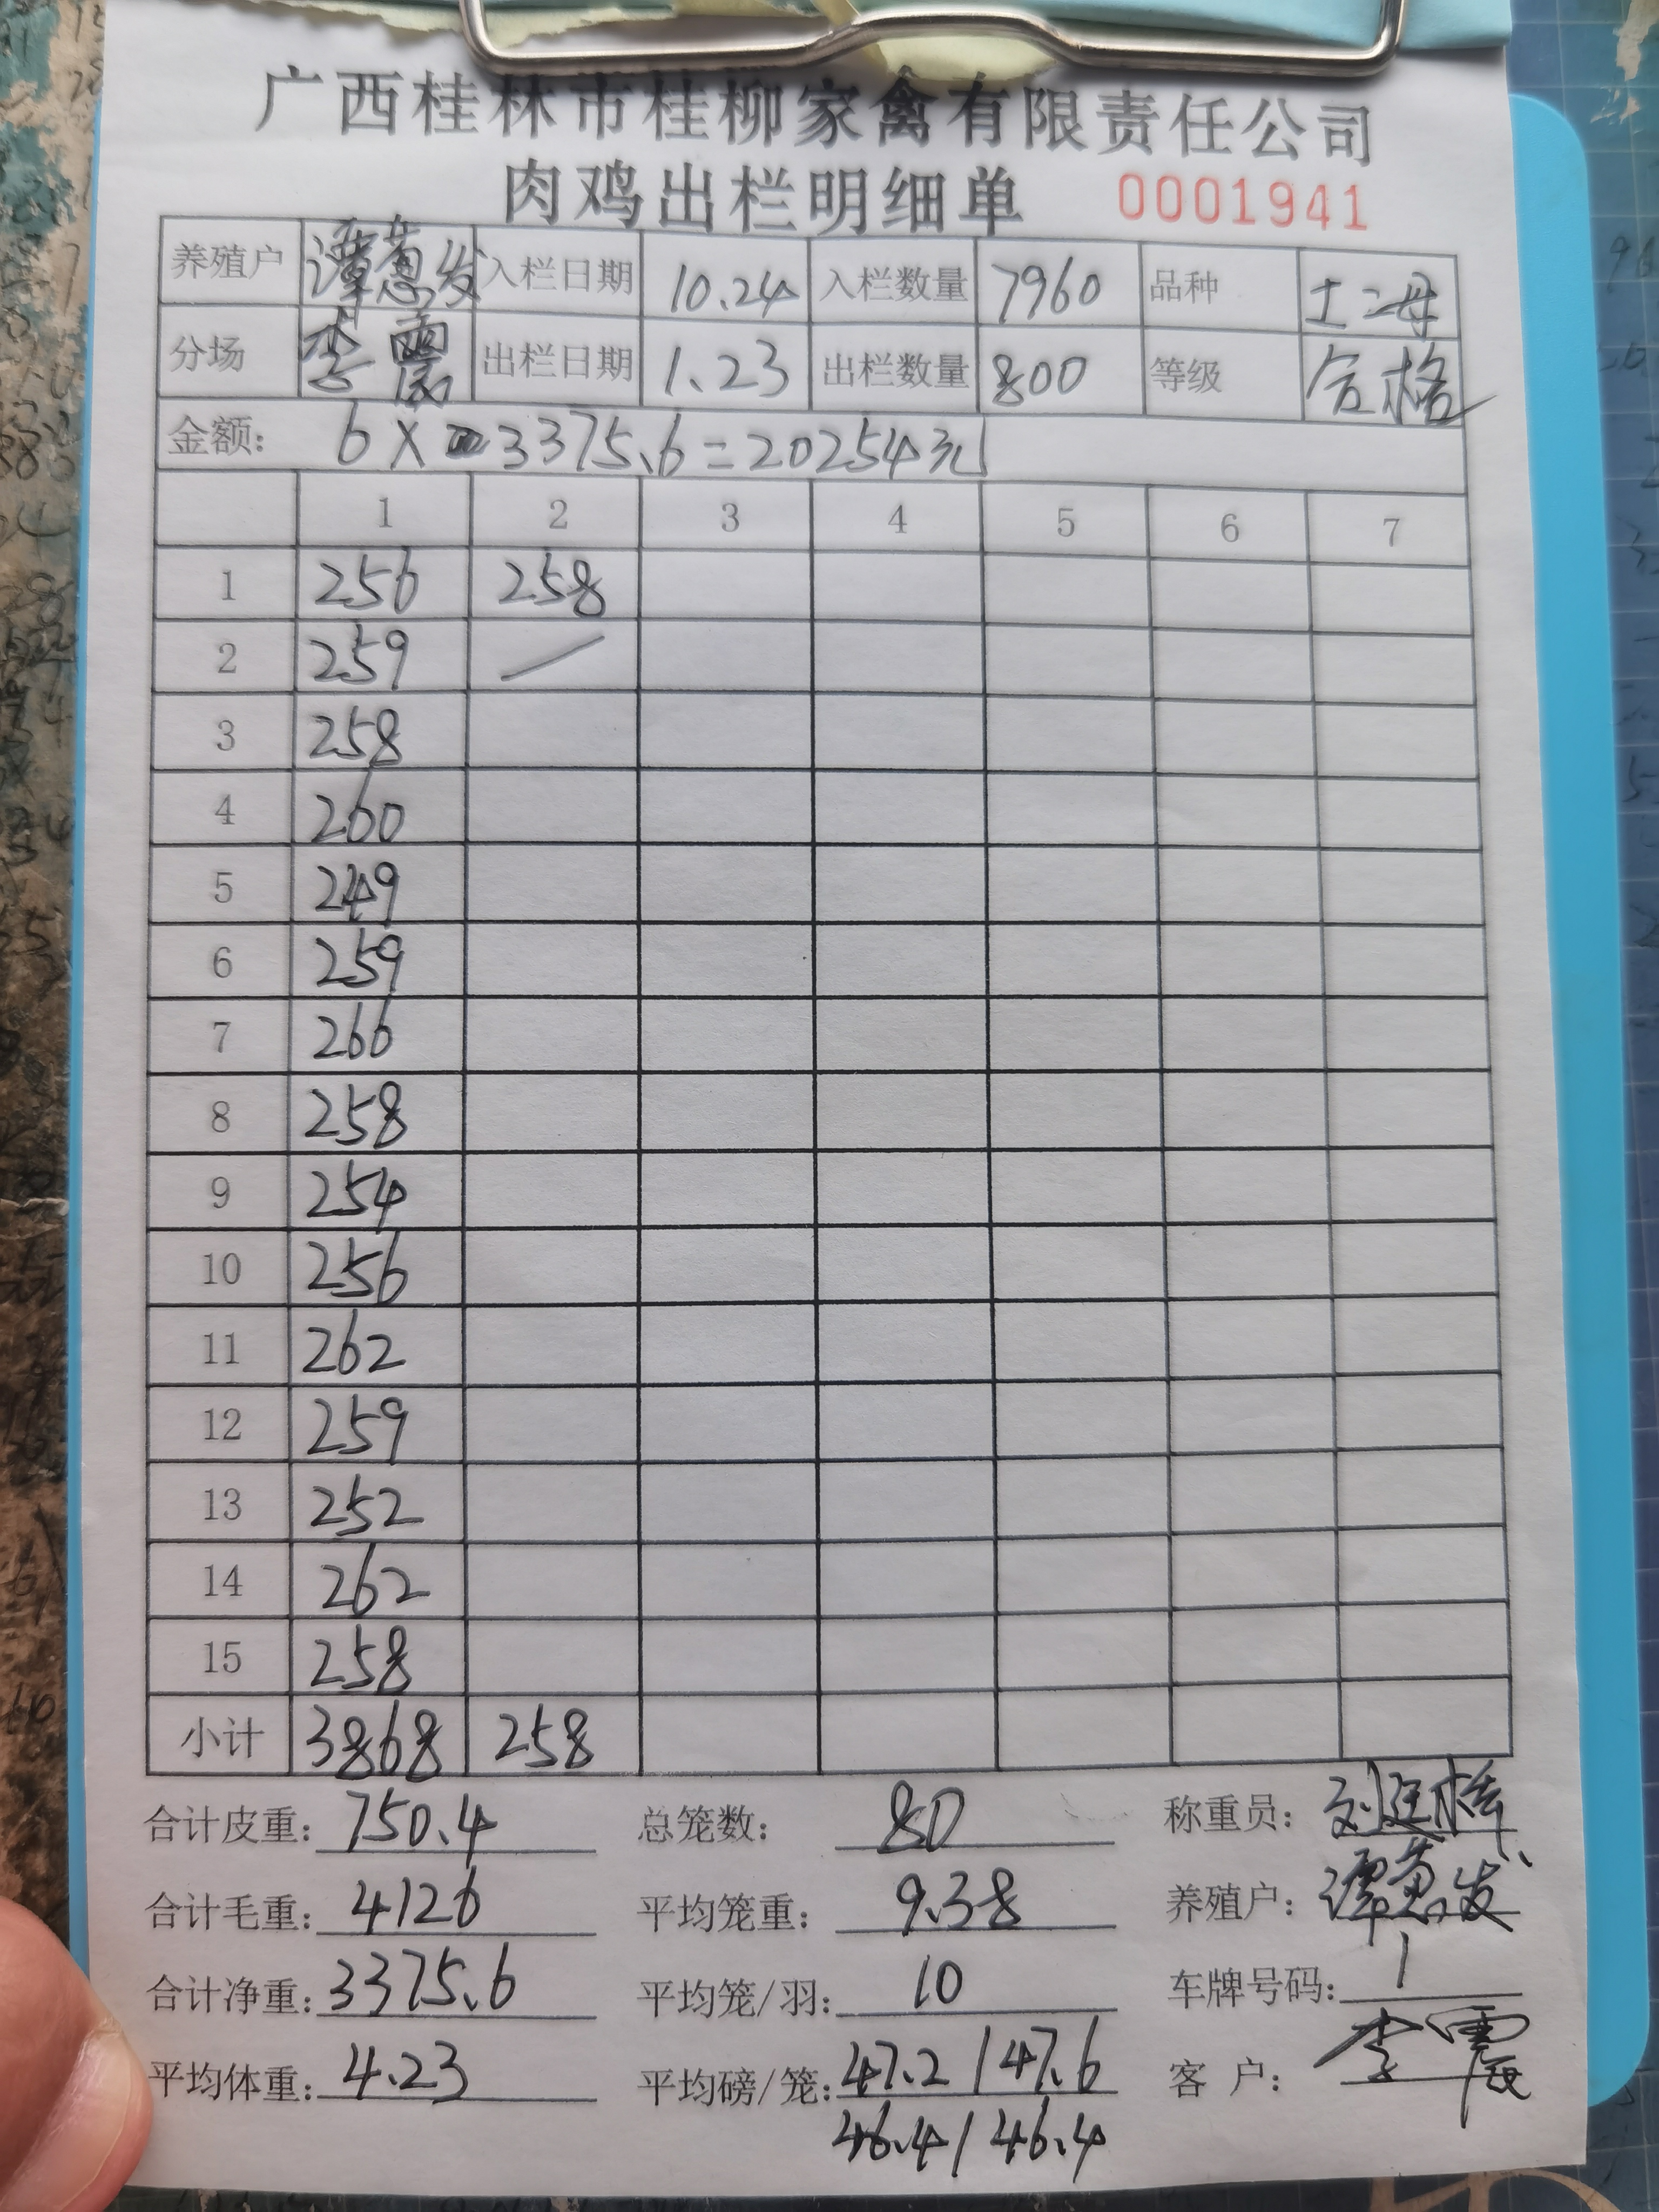 广西桂林市桂柳家禽有限责任公司
肉鸡出栏明细单 0001941
养殖户 谭 发 入栏日期 10.24 入栏数量 7960 品种 土二母
分场 李震 出栏日期 1.23 出栏数量 800 等级 合格
金额: 6 X 3375.6=20254元
1 2 3 4 5 6 7
1 256 258
2 259 /
3 258
4 260
5 249
6 259
7 266
8 258
9 254
10 256
11 262
12 259
13 252
14 262
15 258
小计 3868 258
合计皮重: 750.4 总笼数: 80 称重员: 刘廷
合计毛重: 4126 平均笼重: 9.38 养殖户: 谭 发
合计净重: 3375.6 平均笼/羽: 10 车牌号码: 1
平均体重: 4.23 平均磅/笼: 47.2/47.6 客 户: 李震
46.4/46.4